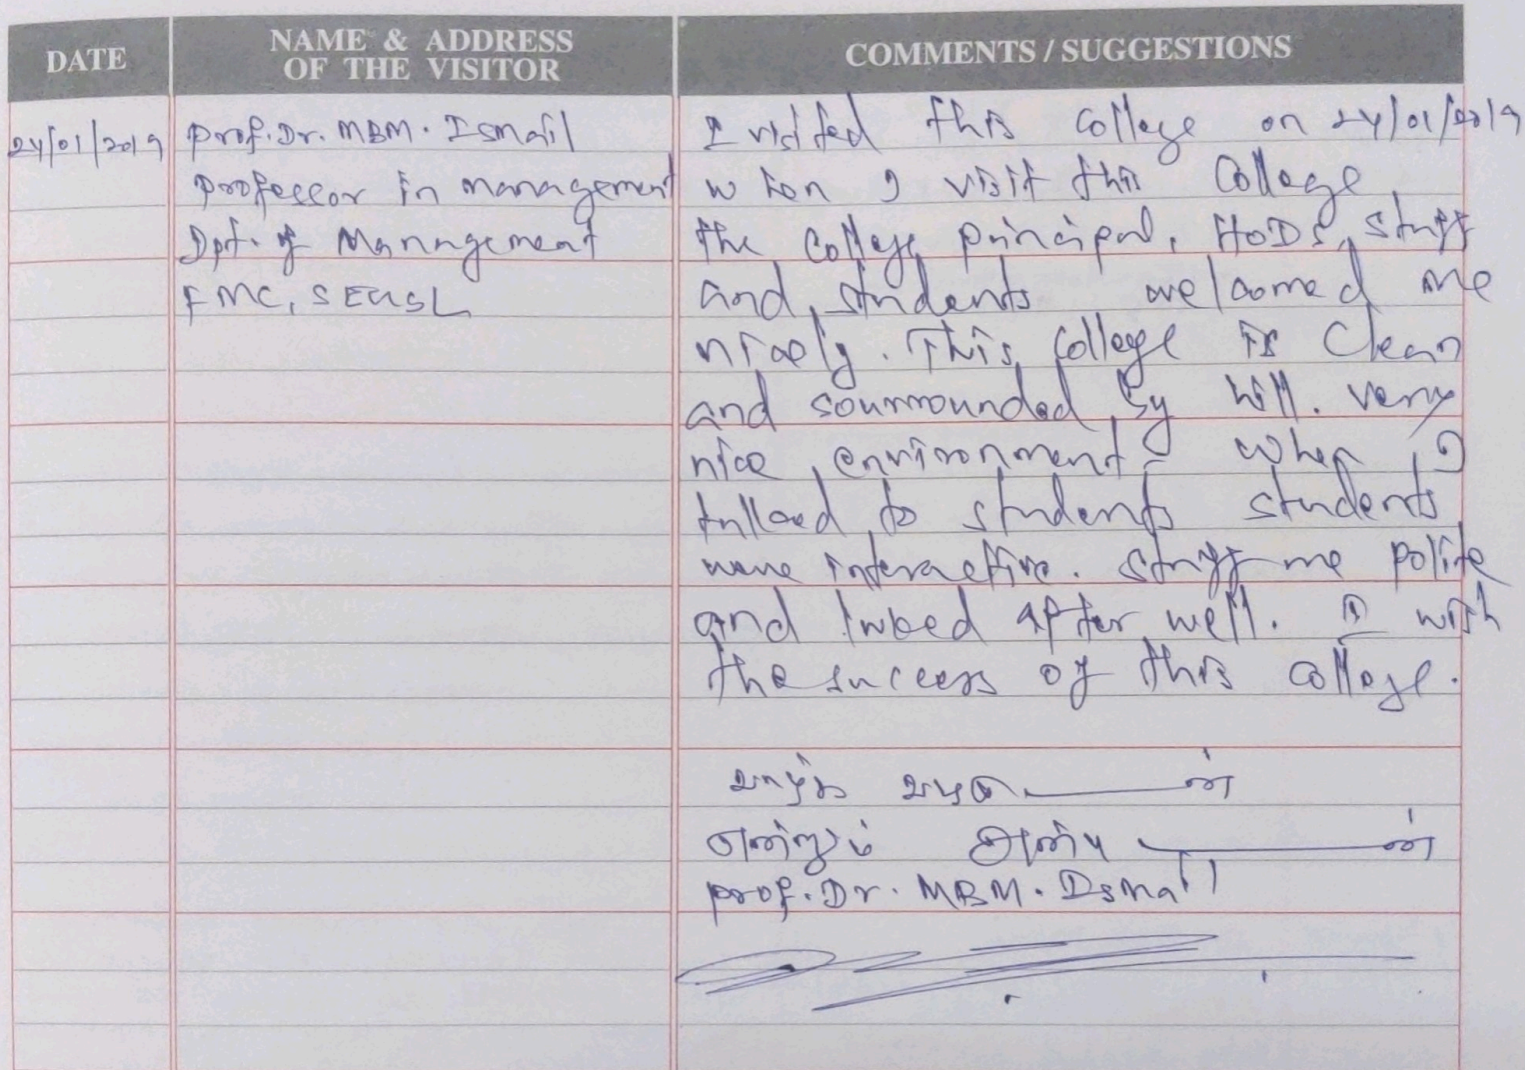 DATE
NAME & ADDRESS
OF THE VISITOR
COMMENTS / SUGGESTIONS
24/01/2019
Prof. Dr. MBM. Ismail
Professor in management
Dpt. of Management
FMC, SEUSL
I visited this college on 24/01/2019
when I visit this College
the college principal, HODs, staff
and students welcomed me
nicely. This college is Clean
and sourrounded by hill. very
nice environment. When I
talked to students students
were interactive. staff are polite
and looked after well. I wish
the success of this college.
வாழ்க வழமுடன்
என்றும் அன்புடன்
Prof. Dr. MBM. Ismail